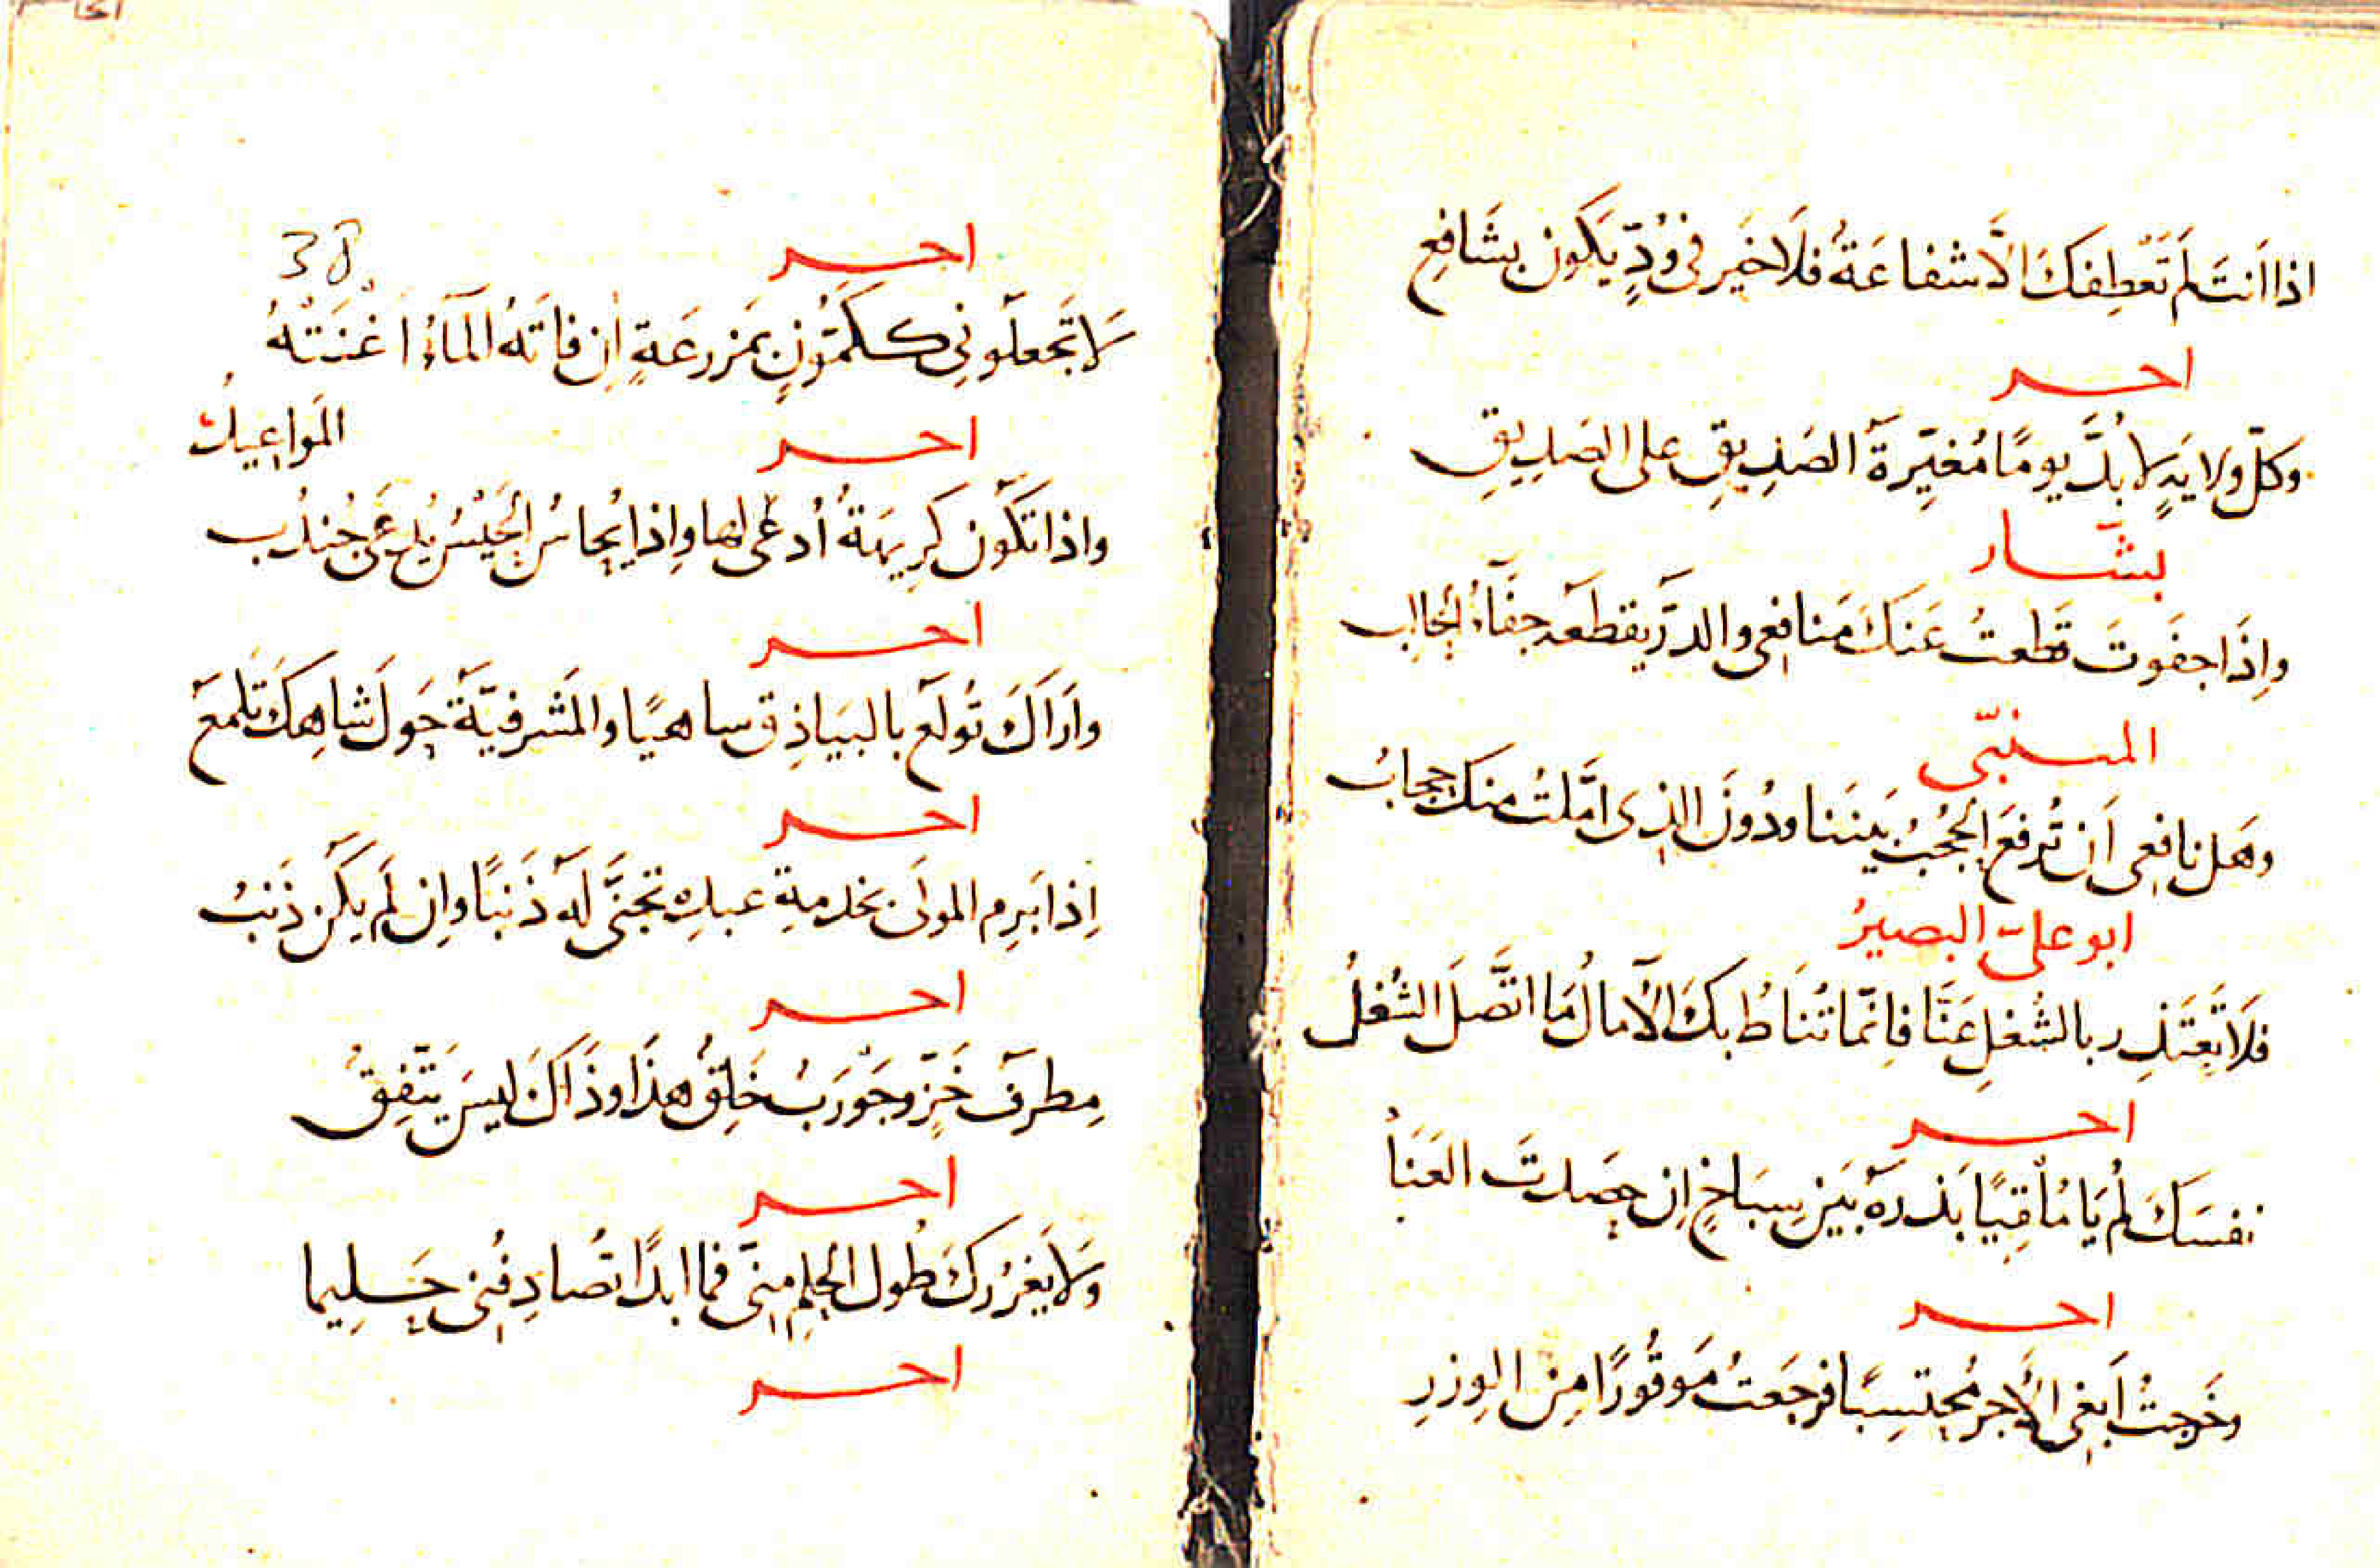 اذا انتَ لَم تَعطِفكَ الَّا شفاعَةٌ فلَا خَير فى وُدٍّ يَكون بشَافعِ
اخر
وكلّ ولايَةٍ لا بُدَّ يومًا مُغَيِّرةَ الصَدِيقِ على الصَدِيقِ
بشّار
وإِذَا جفَوتَ قَطعتُ عَنكَ مَنافعِى والدَرّ يقطَعه جفَآءُ الحالِب
المتنبّى
وهَل نافِعِى اَن تُرفَعَ الحُجبُ بَينَنا ودُونَ الذِى امَّلتُ منكَ حِجابُ
ابو علىّ البصيرُ
فلَا تَعتَذِر بالشُغلِ عَنَّا فاِنّما تُنَاطُ بكَ الآمالُ مَا اتَّصَلَ الشُغلُ
اخر
نفسَكَ لُم يَا مُلقِيًا بَذرَهُ بَينَ سِبَاخٍ اِن حصدتَ العَنَا
اخر
وخَرجتُ اَبغِى الأَجرَ مُحتسِبًا فرجَعتُ مَوقُورًا مِنَ الوِزرِ
38
اخر
لَا تَجعَلُونِى ككَمُّونٍ بمَزرعَةٍ اِن فاتَهُ المَآءُ اغنَتهُ
المَواعِيدُ
اخر
واذا تَكُون كَرِيهَةٌ اُدعَى لها وإِذا يُحاسُ الحَيسُ يُدعَى جُندُب
اخر
وارَاكَ تُولَع بالبَياذِق ساهيًا والمَشرفيَّةَ حَولَ شاهِكَ تَلمَعُ
اخر
إِذا بَرِم المولَى بخدمةِ عبدِه تجنَّى لَهُ ذَنبًا واِن لَم يكُن ذَنبُ
اخر
مِطرَف خَزّ وجَورَبُ خَلِقُ هذَا وذَاكَ ليسَ يَتَّفِقُ
اخر
ولَا يَغرُركَ طُول الحِلم مِنّى فما ابدًا تُصادِفُنِى حَلِيما
اخر